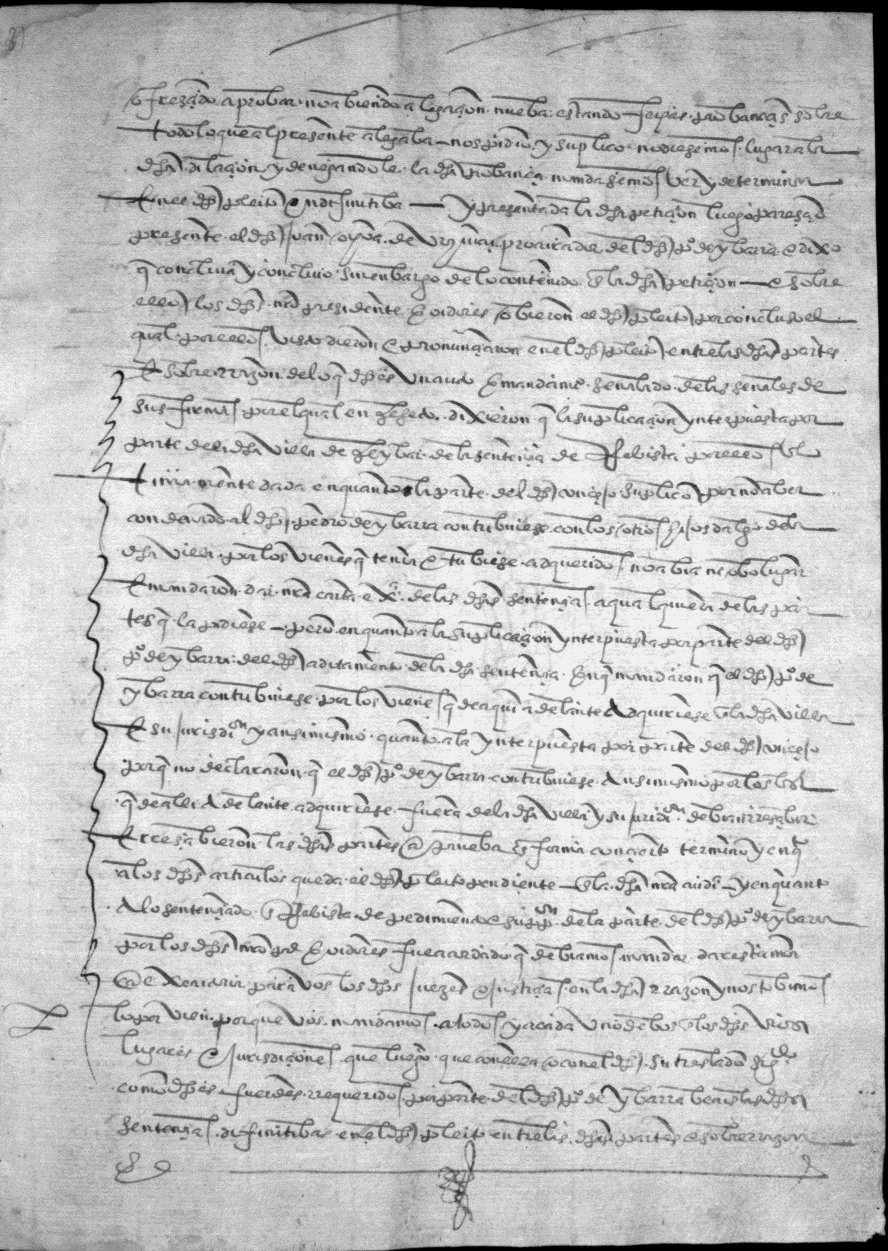 ofreçiendo a probar no abiendo alegaçion nueba estando fechas probanças sobre
todo lo que al presente alegaba nos pidio y suplico no diesemos lugar a la
dha dilaçion y denegandole la dha probança mandasemos ver y determinar
el dho pleito en difinitiba y presentada la dha petiçion luego paresçio
presente el dho juan de procurador del dho pº de ybarra e dixo
q concluia y concluio sin enbargo de lo contenido en la dha petiçion e sobre
ello los dhos nro presidente e oidores obieron el dho pleito por concluso el
qual por ellos visto dieron e pronunçiaron en el dho pleito entre las dhas partes
e sobre rrazon de lo q dho es un auto e mandamiº señalado de las señales de
sus firmas por el qual en efeto dixieron q la suplicaçion ynterpuesta por
parte de la dha villa de eybar de la sentençia de Rebista por ellos
mente dada en quanto la parte del dho conçejo suplico por no aber
condenado al dho pedro de ybarra contubuiese con los otros hijosdalgo de la
dha villa por los vienes q tenia e tubiese adqueridos no abia ni obo lugar
e mandaron dar nra carta exª de las dhas sentençias a qualquiera de las par
tes q la pidiese pero en quanto a la suplicaçion ynterpuesta por parte del dho
pº de ybarra del dho aditamento de la dha sentençia en q mandaron q el dho pº de
ybarra contubuiese por los vienes q de aqui adelante adquiriese en la dha villa
e su jurisdiºn y ansimismo quanto a la ynterpuesta por parte del dho conçejo
porq no declararon q el dho pº de ybarra contubuiese ansimismo por los
q de alli adelante adquiriese fuera de la dha villa y su juridiºn debian rresçibir
e rresçibieron las dhas partes a prueba en forma con çierto termino y en qº
a los dhos articulos queda el dho pleito pendiente en la dha nra audiª y en quanto
a lo sentençiado en Rebista de pedimiento e supºn de la parte del dho pº de ybarra
por los dhos nro pte e oidores fue acordado q debiamos mandar dar esta nra
carta executoria para vos los dhos juezes e justiçias en la dha rrazon y nos tobimos
lo por vien porque vos mandamos a todos y a cada uno de bos en los dhos vros
lugares e jurisdiçiones que luego que con ella o con el dho su treslado sigdo
como dho es fuerdes rrequeridos por parte del dho pº de ybarra beais las dhas
sentençias difinitibas en el dho pleito entre las dhas partes e sobre rrazon